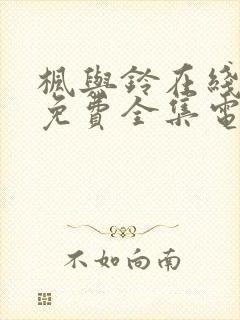 楓與鈴在綫
免費全集電
不如向南